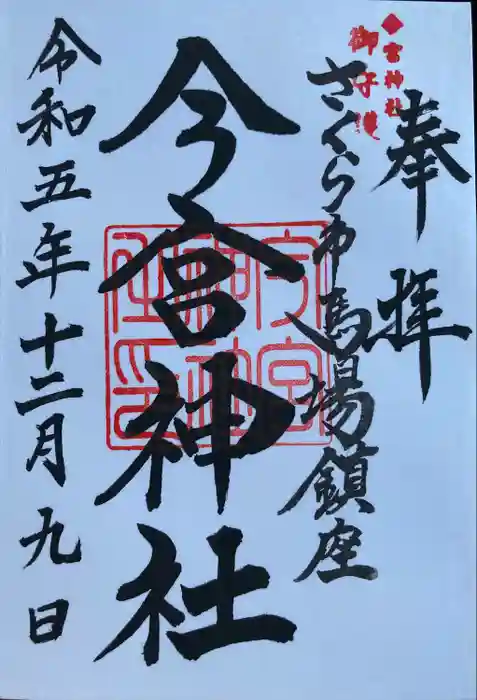 奉拝
宮神社
御守護
さくら市馬場鎮座
今宮神社
令和五年十二月九日